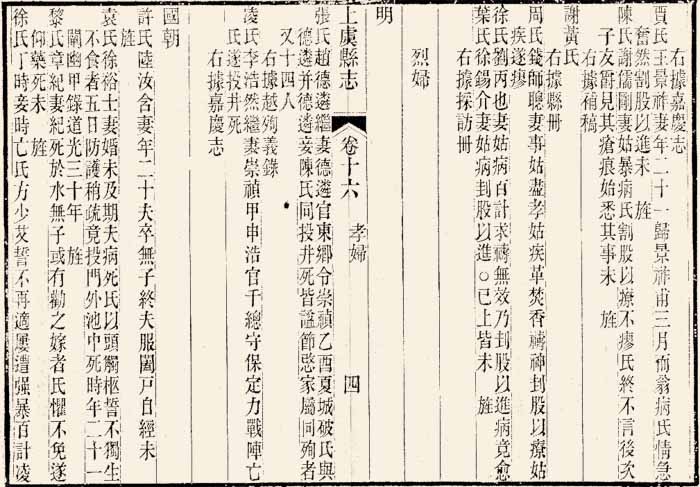 賈氏王景祥妻年二十一歸景祥甫三月而翁病氏情急
奮然割股以進未　旌
右據嘉慶志
陳氏謝儒剛妻姑暴病氏割股以療不瘳氏終不言後次
子友爵見其瘡痕始悉其事未　旌
右據補稿
謝黃氏
右據縣冊
周氏錢師聰妻事姑盡孝姑疾革焚香禱神刲股以療姑
疾遂瘳
徐氏劉丙也妻姑病百計求禱無效乃刲股以進病竟愈
葉氏徐錫介妻姑病刲股以進○已上皆未　旌
右據採訪冊
烈婦
明
上虞縣志
卷十六
孝婦
四
張氏趙德遴繼妻德遴官東鄉令崇禎乙酉夏城破氏與
德遴并德遴妾陳氏同投井死皆諡節愍家屬同殉者
又十四人
右據越殉義錄
凌氏李浩然繼妻崇禎甲申浩官千總守保定力戰陣亡
氏遂投井死
右據嘉慶志
國朝
許氏陸汝含妻年二十夫卒無子終夫服闔戶自經未
旌
袁氏徐裕士妻婚未及期夫病死氏以頭觸柩誓不獨生
不食者五日防護稍疏竟投門外池中死時年二十一
闡幽甲錄道光三十年　旌
黎氏章紀妻紀死於水無子或有勸之嫁者氏懼不免遂
仰藥死未　旌
徐氏丁時妾時亡氏方少艾誓不再適屢遭强暴百計凌